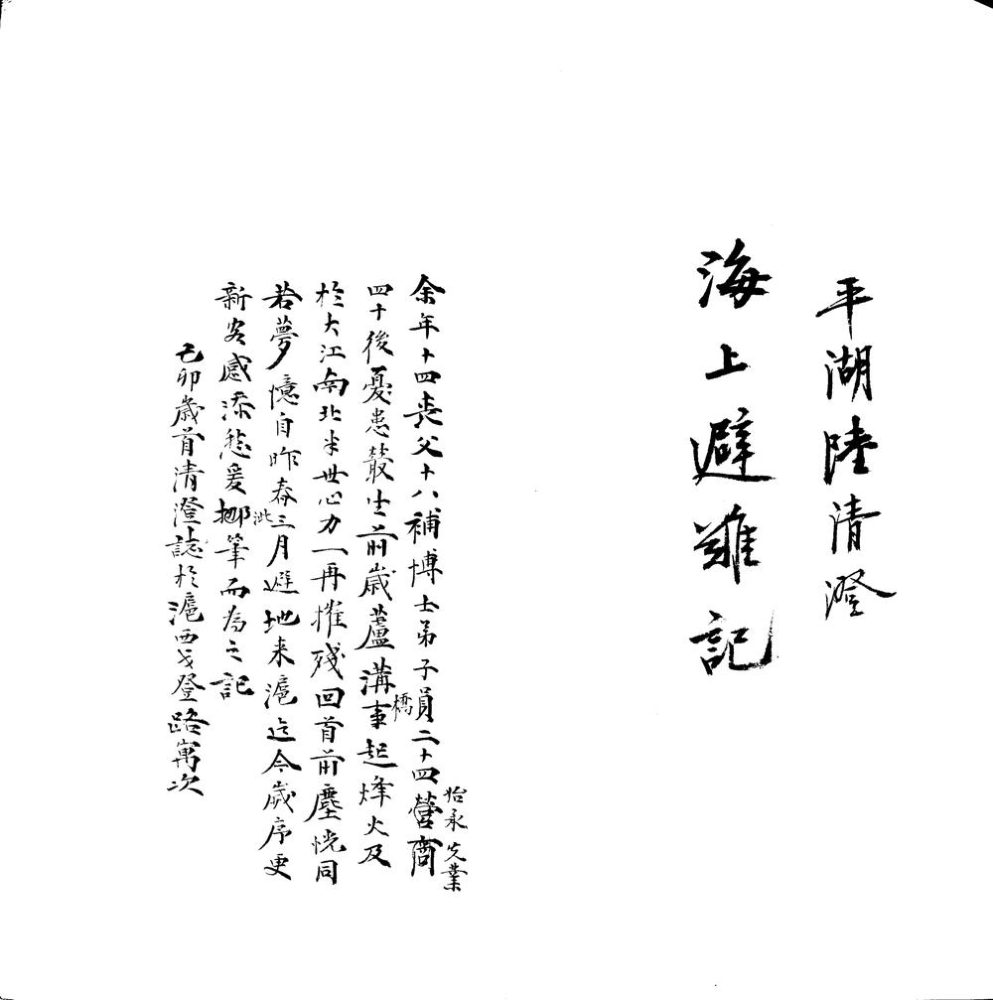 平湖陸清澄
海上避難記
怡永先業
余年十四喪父十八補博士弟子員二十四營商
四十後憂患叢生前歲蘆溝橋事起烽火及
於大江南北半世心力一再摧殘回首前塵恍同
若夢憶自昨春三月避地来滬迄今歲序更
新客感添愁爰挪筆而為之記
此
己卯歲首清澄誌於滬西戈登路寓次